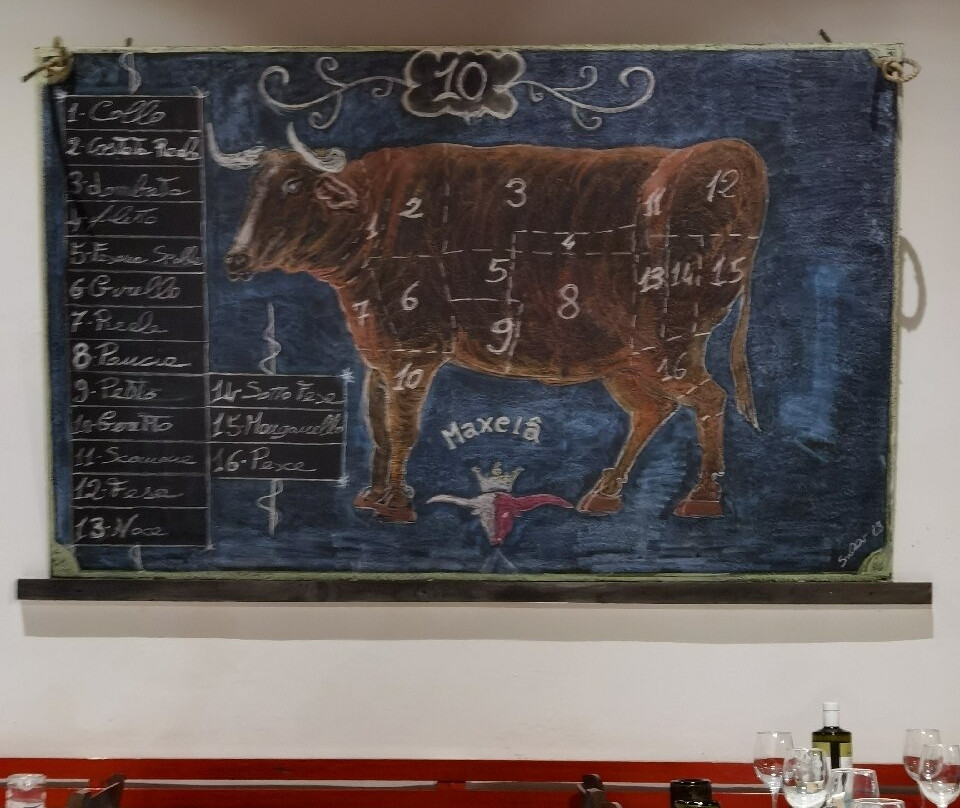 10
1- Collo
2- Costata Reale
3- Lombata
4- Filetto
5- Fesone Spalla
6 Girello
7- Reale
8- Pancia
9- Petto
10- Geretto
11- Scamone
12- Fesa
13- Noce
14- Sotto Fesa
15- Marganello
16- Pesce
1
2
3
4
5
6
7
8
9
10
11
12
13
14
15
16
Maxelâ